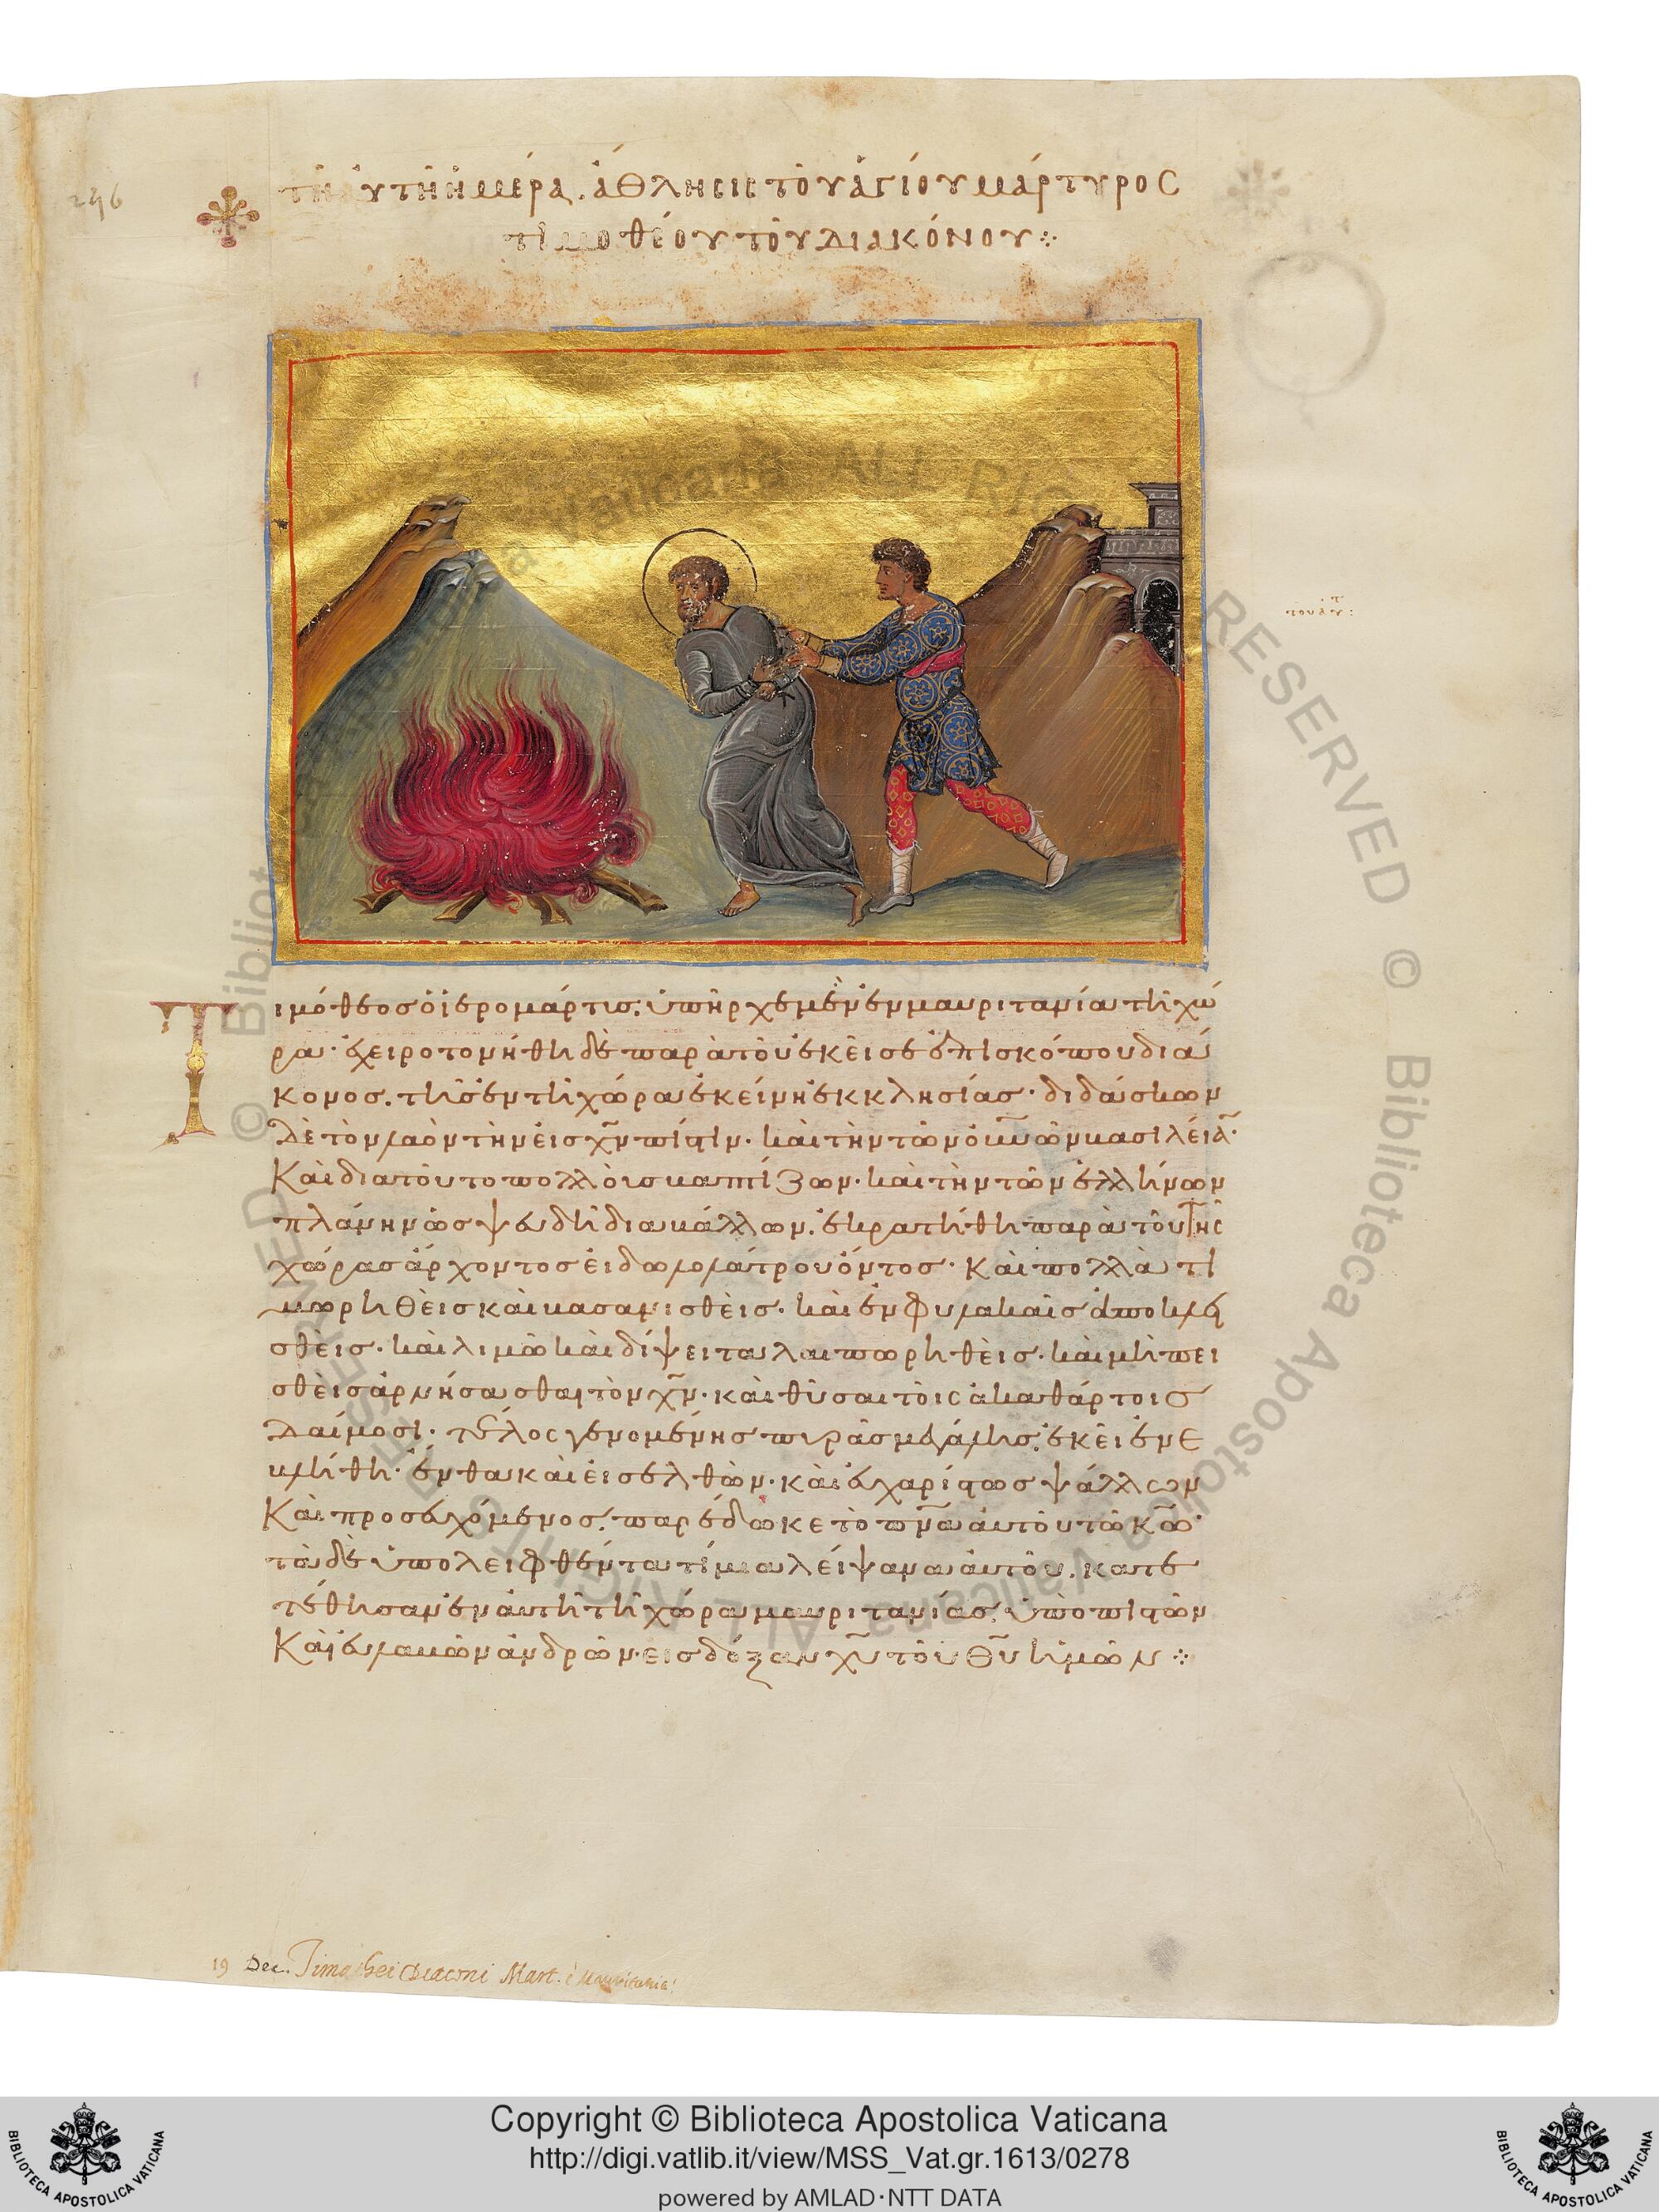 246
τῆ αὐτῆ ἡμέρα. ἄθλησις τοῦ ἁγίου μάρτυρος
τιμοθέου τοῦ διακόνου
Τιμόθεος ὁ ἱερομάρτυς, ὑπῆρχε μὲν ἐν μαυριτανία τῆ χώ
ρα· ἐχειροτονήθη δὲ παρὰ τοῦ ἐκεῖσε ἐπισκόπου διά
κονος. τῆς ἐν τῆ χώρα ἐκείνη ἐκκλησίας· διδάσκων
δὲ τὸν λαὸν τὴν εἰς χν πίστιν· καὶ τὴν τῶν οὐνων βασιλείαν·
Καὶ διὰ τοῦτο πολλοὺς βαπτίζων· καὶ τὴν τῶν ἑλλήνων
πλάνην ὡς ψευδῆ διαβάλλων. ἐκρατήθη παρὰ τοῦ τῆς
χώρας ἄρχοντος εἰδωλολάτρου ὄντος· Καὶ πολλὰ τι
μωρηθεὶς καὶ βασανισθεὶς· καὶ ἐν φυλακαῖς ἀποκλει
σθεὶς· καὶ λιμῶ καὶ δίψει ταλαιπωρηθεὶς· καὶ μὴ πει
σθεὶς ἀρνήσασθαι τὸν χν· καὶ θῦσαι τοῖς ἀκαθάρτοις
Δαίμοσι· τέλος γενομένης πυρᾶς μεγάλης, ἐκεῖ ἐνε
βλήθη· ἔνθα καὶ εἰσελθὼν· καὶ εὐχαρίστως ψάλλων
Καὶ προσευχόμενος, παρέδωκε τὸ πνα αὐτοῦ τῶ κω·
τὰ δὲ ὑπολειφθέντα τίμια λείψανα αὐτοῦ, κατε
τέθησαν ἐν αὐτῆ τῆ χώρα μαυριτανίας, ὑπὸ πιστῶν
Καὶ εὐλαβῶν ἀνδρῶν· εἰς δόξαν χυ τοῦ θυ ἡμῶν
19 Dec. Timothei Diaconi Mart. i Mauritania
Copyright © Biblioteca Apostolica Vaticana
http://digi.vatlib.it/view/MSS_Vat.gr.1613/0278
powered by AMLAD·NTT DATA
BIBLIOTECA APOSTOLICA VATICANA
BIBLIOTECA APOSTOLICA VATICANA
© Biblioteca Apostolica Vaticana ALL RIGHTS RESERVED © Biblioteca Apostolica Vaticana ALL RIGHTS RESERVED